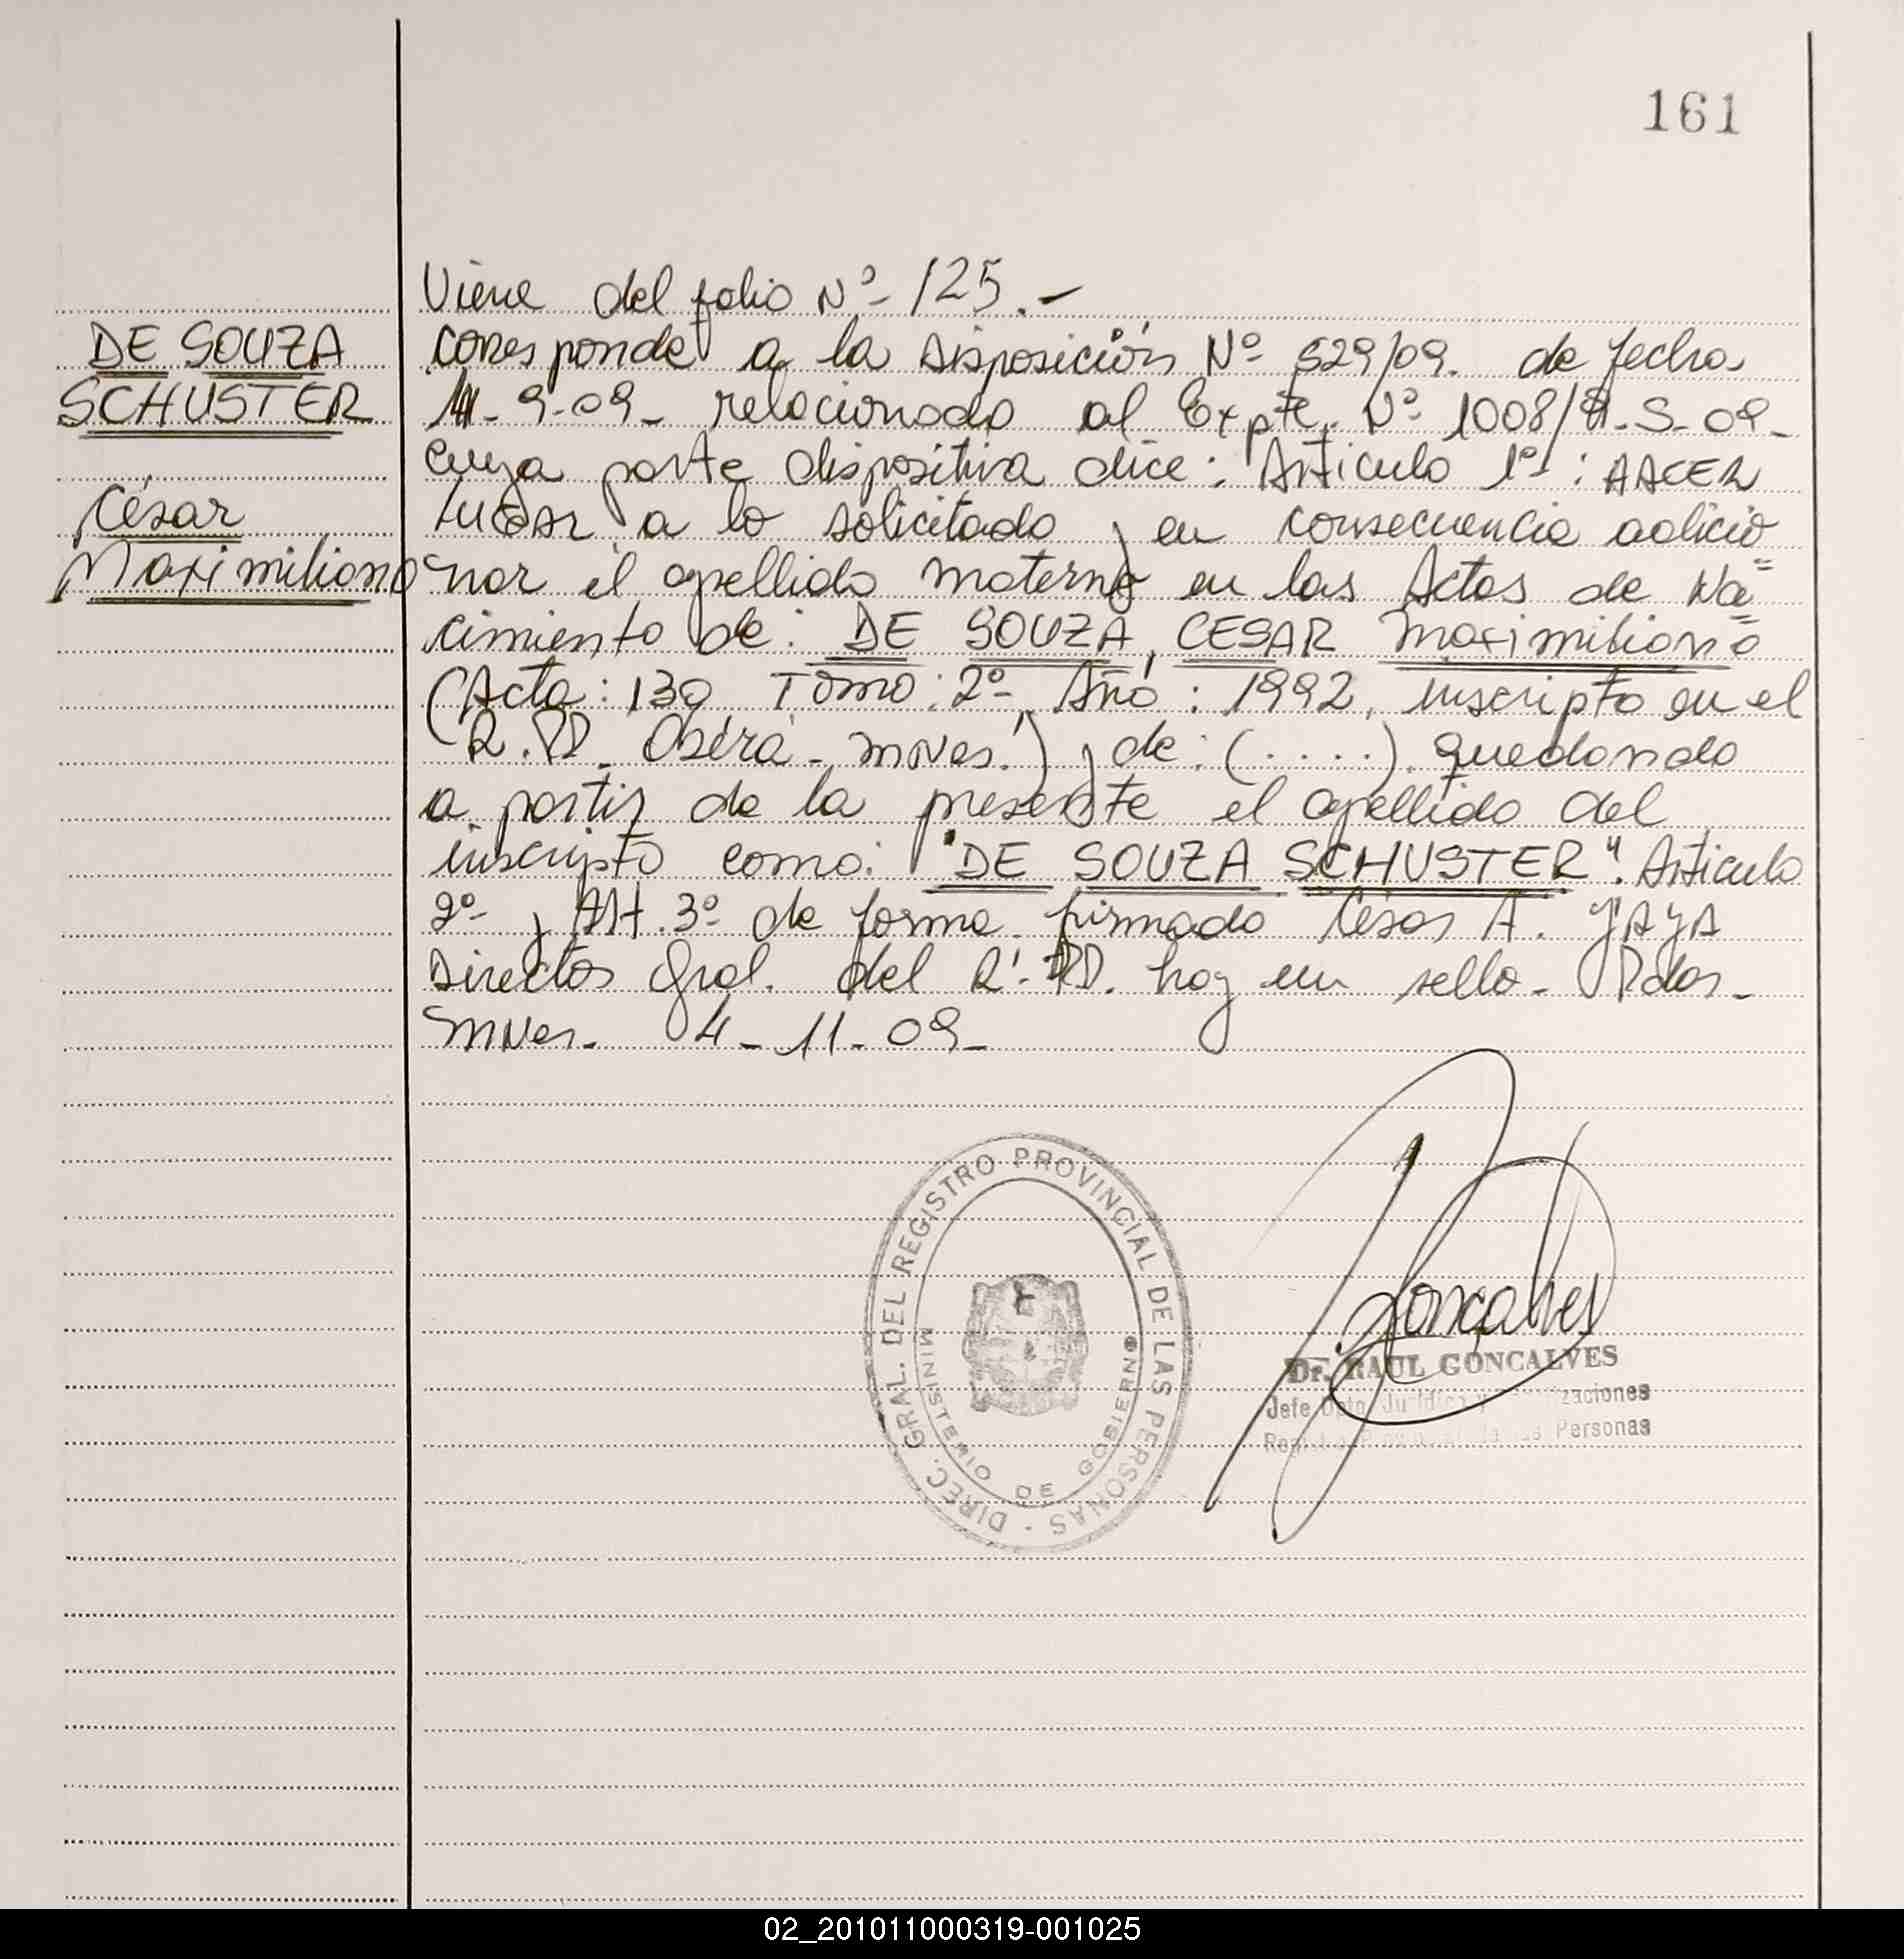 161
Viene del folio Nº 125.-
DE SOUZA
SCHUSTER
César
Maximiliano
corresponde a la Disposición Nº 529/09. de fecha
9-09- relacionado al Expte. Nº 1008/ S-09-
cuya parte dispositiva dice: Articulo 1º: HACER
LUGAR a lo solicitado y en consecuencia adicio
nar el apellido materno en las Actas de Na=
cimiento de: DE SOUZA, CESAR Maximiliano
(Acta: 139 Tomo: 2º- Año: 1992, inscripto en el
R.PP. Oberá- mnes.) y de: (.....). quedando
a partir de la presente el apellido del
inscripto como: "DE SOUZA SCHUSTER". Articulo
2º- y Art. 3º de forma. firmado César A. YAYA
Director Gral. del R.PP. hay un sello- Pdas.
mnes. 4-11-09-
DIREC. GRAL. DEL REGISTRO PROVINCIAL DE LAS PERSONAS -
MINISTERIO DE GOBIERNO
Goncalves
Dr. RAUL GONCALVES
Jefe Dpto. Jurídico y
Registro Provincial de las Personas
02_201011000319-001025